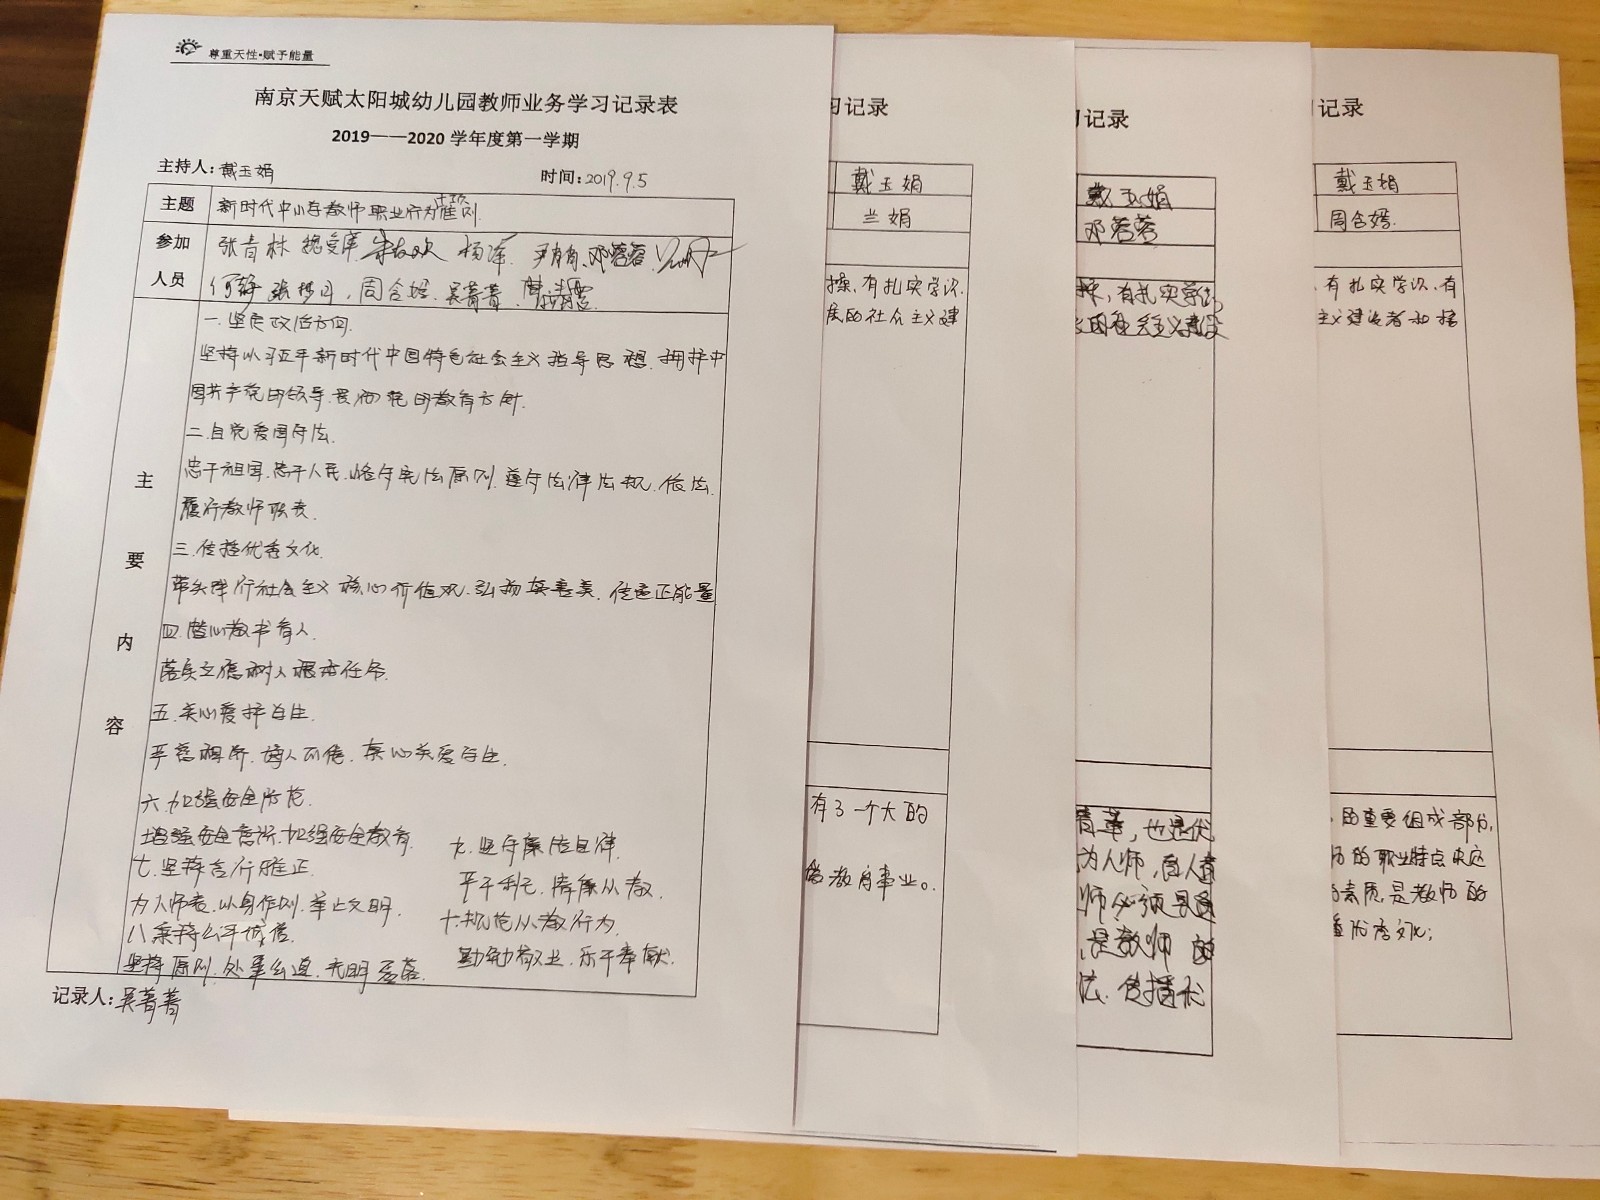 尊重天性·赋予能量
南京天赋太阳城幼儿园教师业务学习记录表
2019——2020 学年度第一学期
主持人:戴玉娟
时间:2019.9.5
主题
新时代中小学教师职业行为十项准则
参加
人员
张青林 杨 邓蓉蓉
何静 张梦月、周含嫣、吴菁菁、
主
要
内
容
一.坚定政治方向.
坚持以习近平新时代中国特色社会主义指导思想,拥护中
国共产党的领导、贯彻党的教育方针.
二.自觉爱国守法.
忠于祖国、忠于人民、恪守宪法原则、遵守法律法规、依法
履行教师职责.
三.传播优秀文化.
带头践行社会主义核心价值观、弘扬真善美、传递正能量
四.潜心教书育人.
落实立德树人根本任务.
五.关心爱护学生.
严慈相济、诲人不倦、真心关爱学生.
六.加强安全防范.
增强安全意识、加强安全教育.
七.坚持言行雅正.
为人师表、以身作则、举止文明.
八.秉持公平诚信.
坚持原则、处事公道、光明磊落.
九.坚守廉洁自律.
严于利己、清廉从教.
十.规范从教行为.
勤勉敬业、乐于奉献.
记录人:吴菁菁
习记录
戴玉娟
兰娟
操,有扎实学识.
展的社会主义建
有了一个大的
教育事业。
习记录
戴玉娟
邓蓉蓉
操,有扎实学识
的社会主义建设
也是伏
为人师,育人者
师必须具备
是教师的
法、传播优
习记录
戴玉娟
周含嫣.
、有扎实学识、有
主义建设者和接
的重要组成部分,
师的职业特点决这
素质,是教师的
播优秀文化;